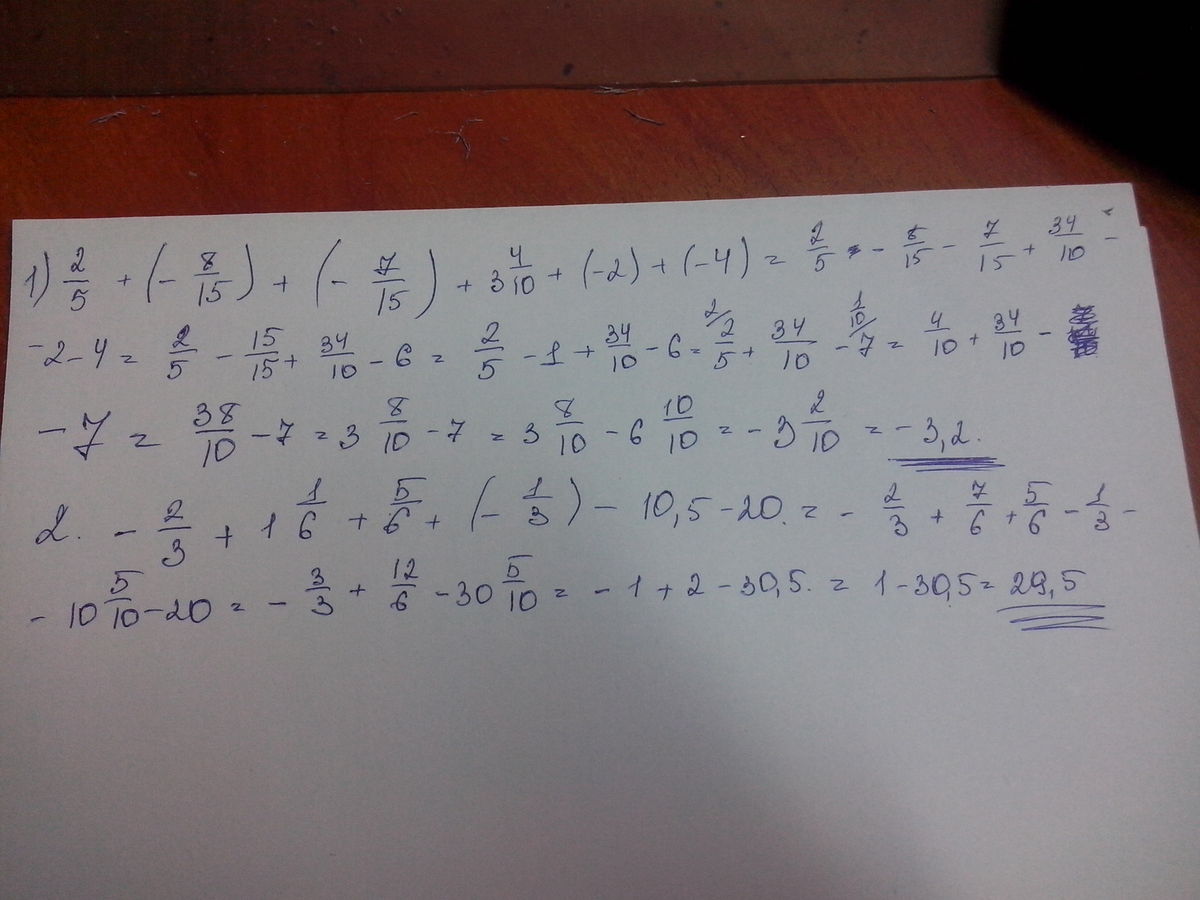 1) 2/5 + (- 8/15) + (- 7/15) + 3 4/10 + (-2) + (-4) = 2/5 - 8/15 - 7/15 + 34/10 -
-2-4 = 2/5 - 15/15 + 34/10 - 6 = 2/5 - 1 + 34/10 - 6 = 2/ 2/5 + 34/10 - 1/10/ 7 = 4/10 + 34/10 -
- 7 = 38/10 - 7 = 3 8/10 - 7 = 3 8/10 - 6 10/10 = - 3 2/10 = - 3,2.
2. - 2/3 + 1 1/6 + 5/6 + (- 1/3) - 10,5 - 20. = - 2/3 + 7/6 + 5/6 - 1/3 -
- 10 5/10 - 20 = - 3/3 + 12/6 - 30 5/10 = - 1 + 2 - 30,5. = 1 - 30,5 = 29,5